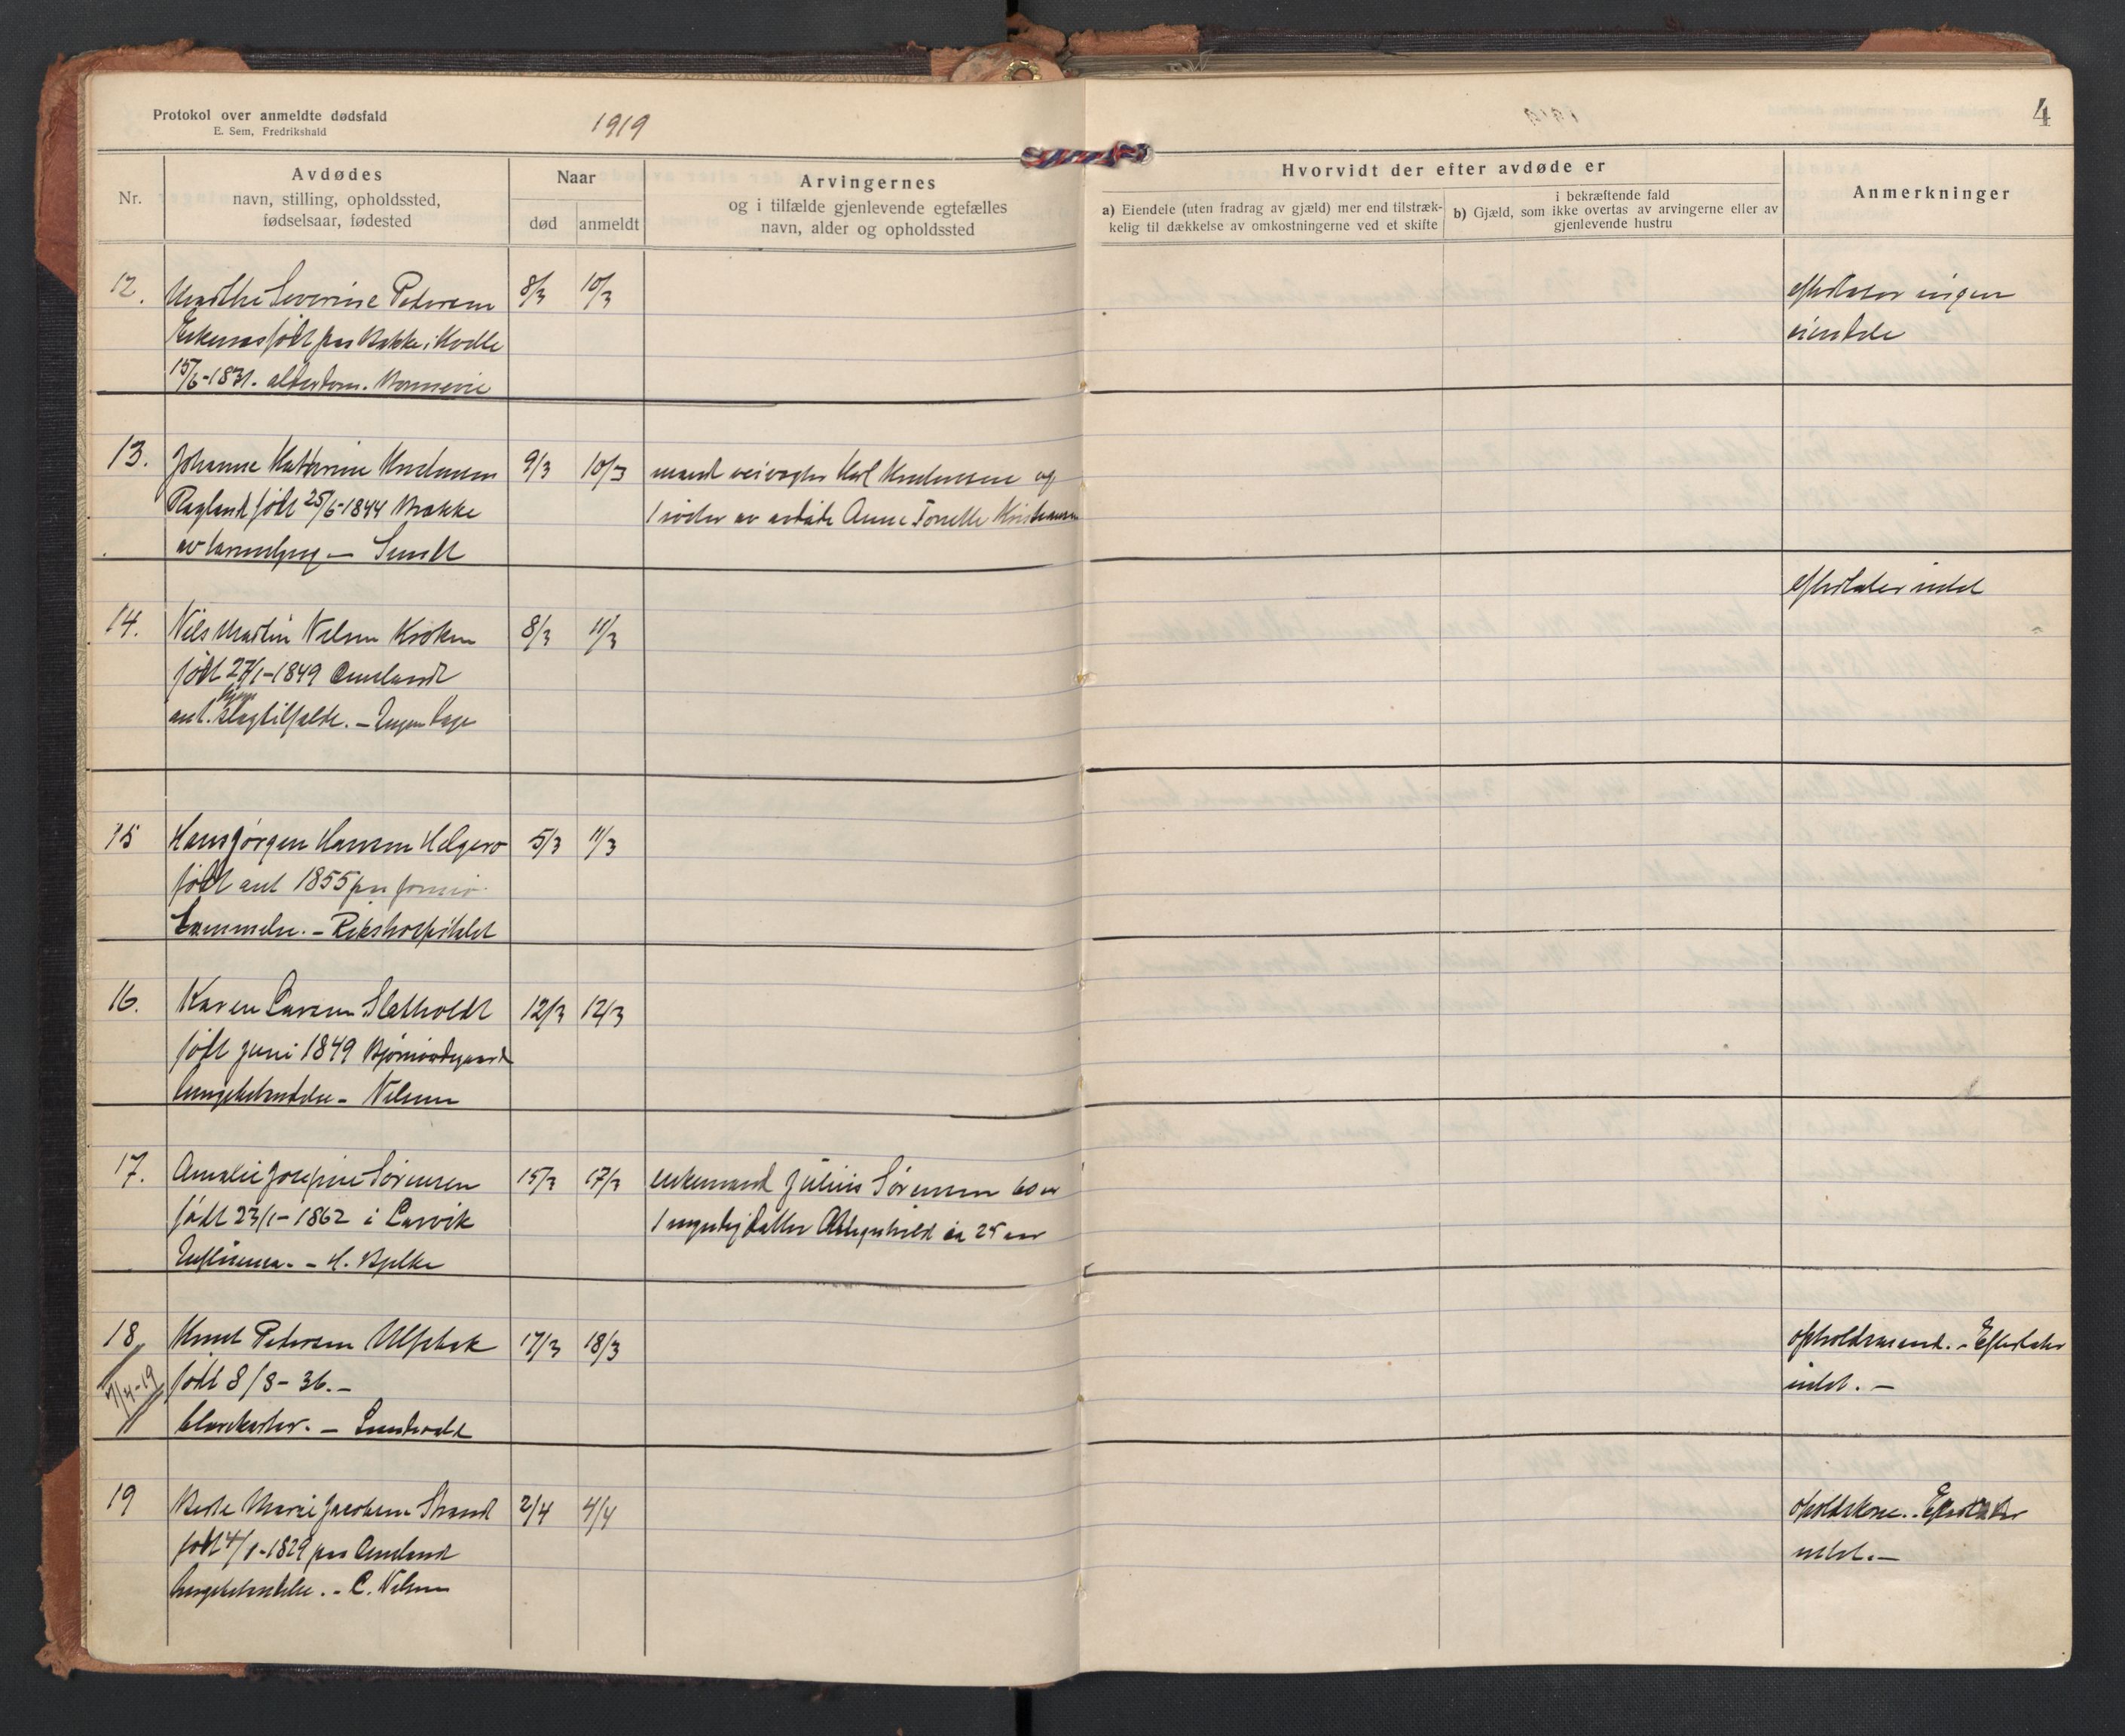 Protokol over anmeldte dødsfald
E. Sem, Fredrikshald
1919
4
Nr.
Avdødes
navn, stilling, opholdssted,
fødselsaar, fødested
Naar
død
anmeldt
Arvingernes
og i tilfælde gjenlevende egtefælles
navn, alder og opholdssted
Hvorvidt der efter avdøde er
a) Eiendele (uten fradrag av gjæld) mer end tilstræk-
kelig til dækkelse av omkostningerne ved et skifte
i bekræftende fald
b) Gjæld, som ikke overtas av arvingerne eller av
gjenlevende hustru
Anmerkninger
12. Marthe Severine Petersen 8/3 10/3 efterlater ingen
født paa Bakke i
eiendele
15/6-1831. alderdom.
13. Johanne Kathrine 9/3 10/3 mand veivogter Karl og
født 25/6-1844 Brække
1 søster av avdøde Anne Torielle Kristiansen
14. Nils Martin Nilsen Kroken 8/3 11/3 efterlater intet
født 27/1-1849 Omslandt
ant. slagtilfælde. - Ingen læge
15 Hans Jørgen Hansen Helgero 5/3 11/3
født ant 1855 paa
- Rikshospitalet
16. Karen Larsen Slettholdt 12/3 12/3
født juni 1849
lungebetændelse - Nilsen
17. Amalie Josefine Sørensen 15/3 17/3 enkemand Julius Sørensen 60 aar
født 23/1-1862 i Larvik
1 myndig datter ca 25 aar
Influensa. - H. Bjelke
18 Knut Petersen Ulfsbak 17/3 18/3 opholdsmand. - Efterlater
7/4-19
født 8/8-36. -
intet. -
- Lundwald
19 Berte Marie Jacobsen Strand 2/4 4/4 Efterlater
født 4/1-1829 paa Omland
intet. -
lungebetændelse. - C. Nilsen